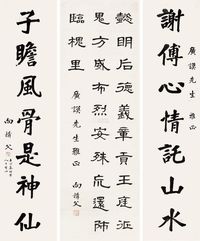 謝傅心情託山水
廣謨先生 雅正
懿明后德義章貢王庭征
鬼方威布烈安殊荒還師
臨槐里
廣謨先生雅正
子瞻風骨是神仙